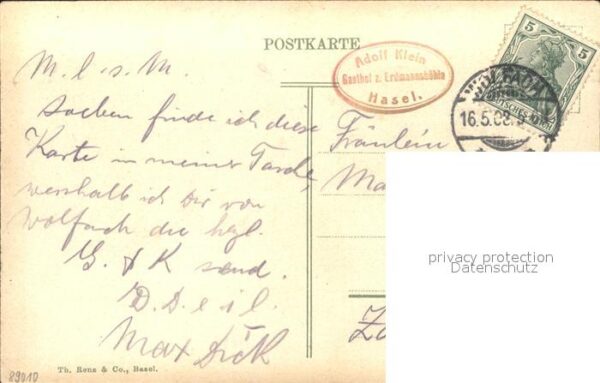 POSTKARTE
Adolf Klein
Gasthof z. Erdmannshöhle
Hasel.
5 5
16.5.08
M. l. s. M.
soeben finde ich diese
Karte in meiner Tasche,
weshalb ich Dir von
Wolfach die hzl.
G. & K send.
D. D. e i l.
Max Dick
Fräulein
Ma
privacy protection
Datenschutz
Th. Renz & Co., Basel.
89010